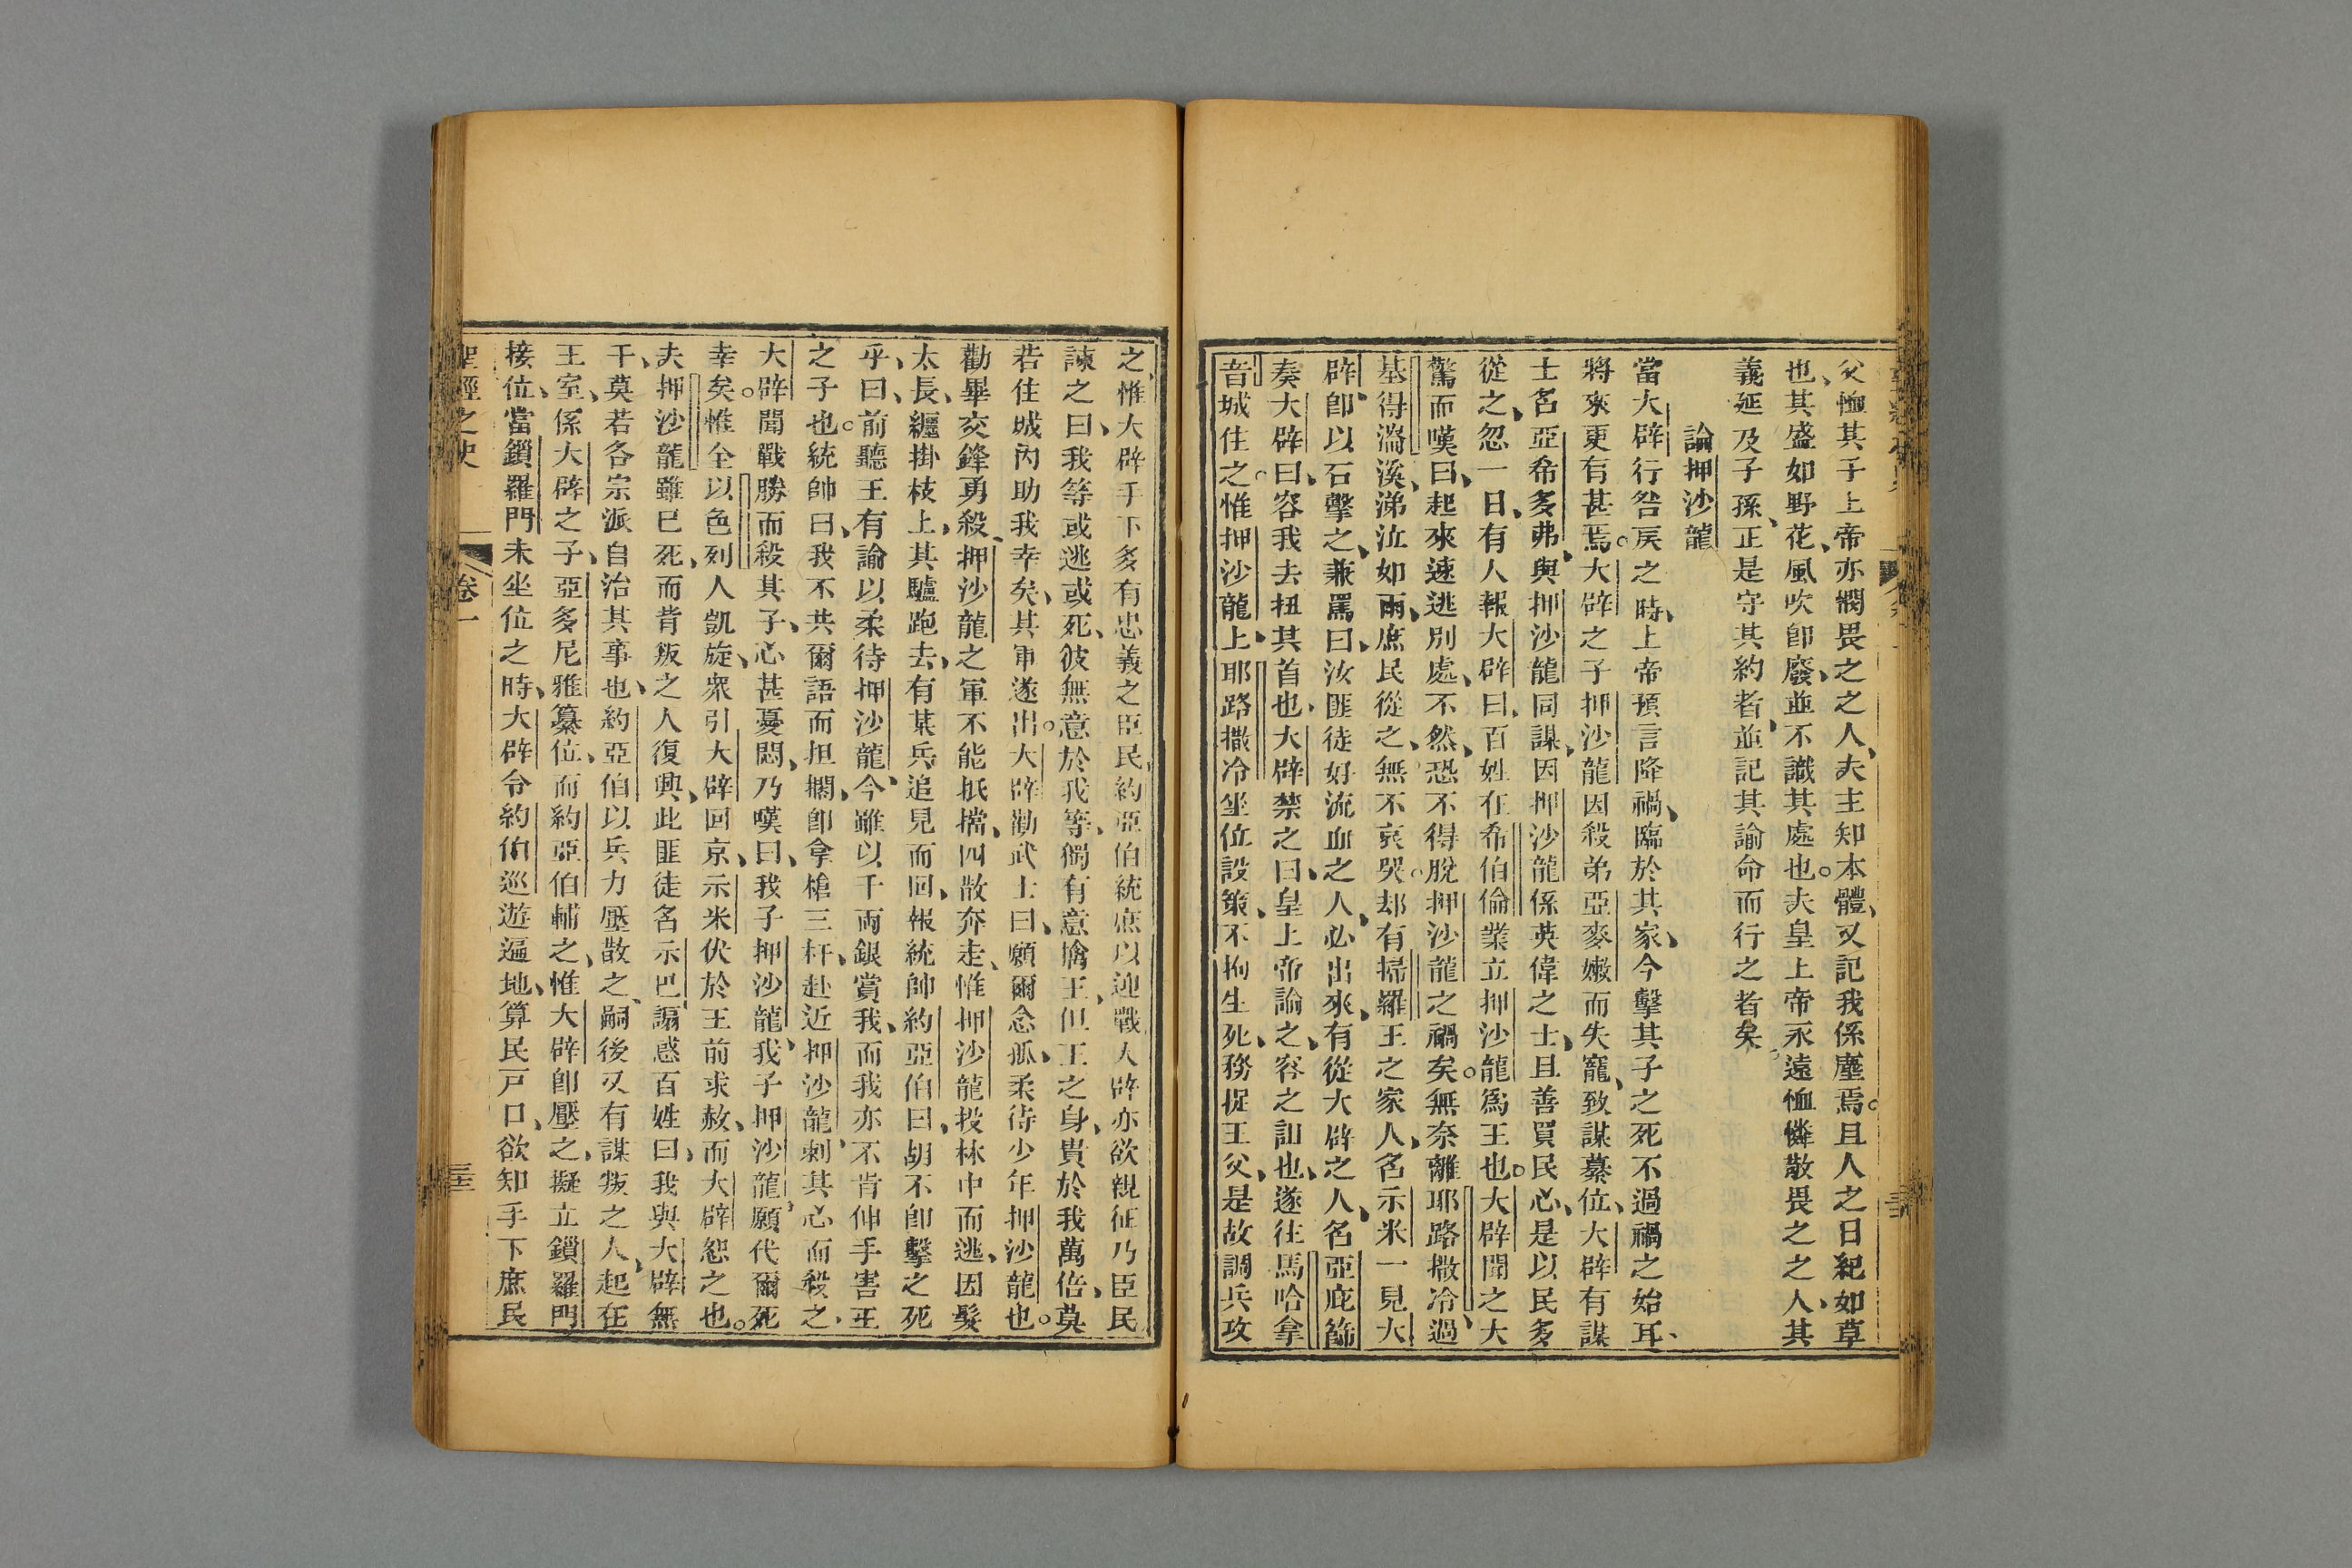 父恤其子上帝亦憫畏之之人、夫主知本體、又記我係塵焉。且人之日紀如草
也、其盛如野花、風吹卽廢、並不識其處也。夫皇上帝永遠恤憐敬畏之之人、其
義延及子孫、正是守其約者、並記其諭命而行之者矣。
論押沙龍
當大辟行咎戾之時、上帝預言降禍、臨於其家、今擊其子之死不過禍之始耳、
將來更有甚焉。大辟之子押沙龍因殺弟亞麥嫩而失寵、致謀纂位、大辟有謀
士名亞希多弗、與押沙龍同謀、因押沙龍係英偉之士、且善買民心、是以民多
從之、忽一日、有人報大辟曰、百姓在希伯倫業立押沙龍爲王也。大辟聞之大
驚而嘆曰、起來速逃別處、不然、恐不得脫押沙龍之禍矣。無奈離耶路撒冷、過
基得淪溪、涕泣如雨、庶民從之、無不哀哭。却有掃羅王之家人、名示米一見大
辟、卽以石擊之、兼罵曰、汝匪徒好流血之人、必出來、有從大辟之人、名亞庇篩
奏大辟曰、容我去扭其首也、大辟禁之曰、皇上帝諭之、容之詛也、遂往馬哈拿
音城住之。惟押沙龍上耶路撒冷坐位設策、不拘生死、務捉王父、是故調兵攻
之、惟大辟手下多有忠義之臣民、約亞伯統庶以迎戰、大辟亦欲親征、乃臣民
諫之曰、我等或逃或死、彼無意於我等、獨有意擒王、但王之身、貴於我萬倍、莫
若住城內助我幸矣、其軍遂出。大辟勸武士曰、願爾念孤、柔待少年押沙龍也。
勸畢交鋒勇殺、押沙龍之軍不能抵擋、四散奔走、惟押沙龍投林中而逃、因髮
太長、纏掛枝上、其驢跑去、有某兵追見而回、報統帥約亞伯曰、胡不卽擊之死
乎、曰、前聽王有諭以柔待押沙龍、今雖以千兩銀賞我、而我亦不肯伸手害王
之子也。統帥曰、我不共爾語而担擱、卽拿槍三杆、赴近押沙龍、刺其心而殺之、
大辟聞戰勝而殺其子、心甚憂悶、乃嘆曰、我子押沙龍、我子押沙龍、願代爾死
幸矣。惟全以色列人凱旋、衆引大辟回京、示米伏於王前求赦、而大辟恕之也。
夫押沙龍雖已死、而背叛之人復興、此匪徒名示巴、謟惑百姓曰、我與大辟無
干、莫若各宗派自治其事也、約亞伯以兵力壓散之、嗣後又有謀叛之人、起在
王室、係大辟之子、亞多尼雅纂位、而約亞伯輔之、惟大辟卽壓之、擬立鎖羅門
接位、當鎖羅門未坐位之時、大辟令約伯巡遊遍地、算民戸口、欲知手下庶民
聖經之史 卷一